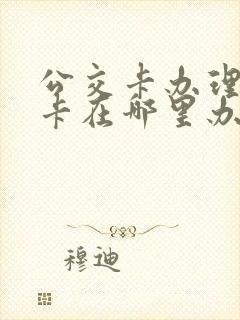 公交卡办理
卡在哪里办
穆迪